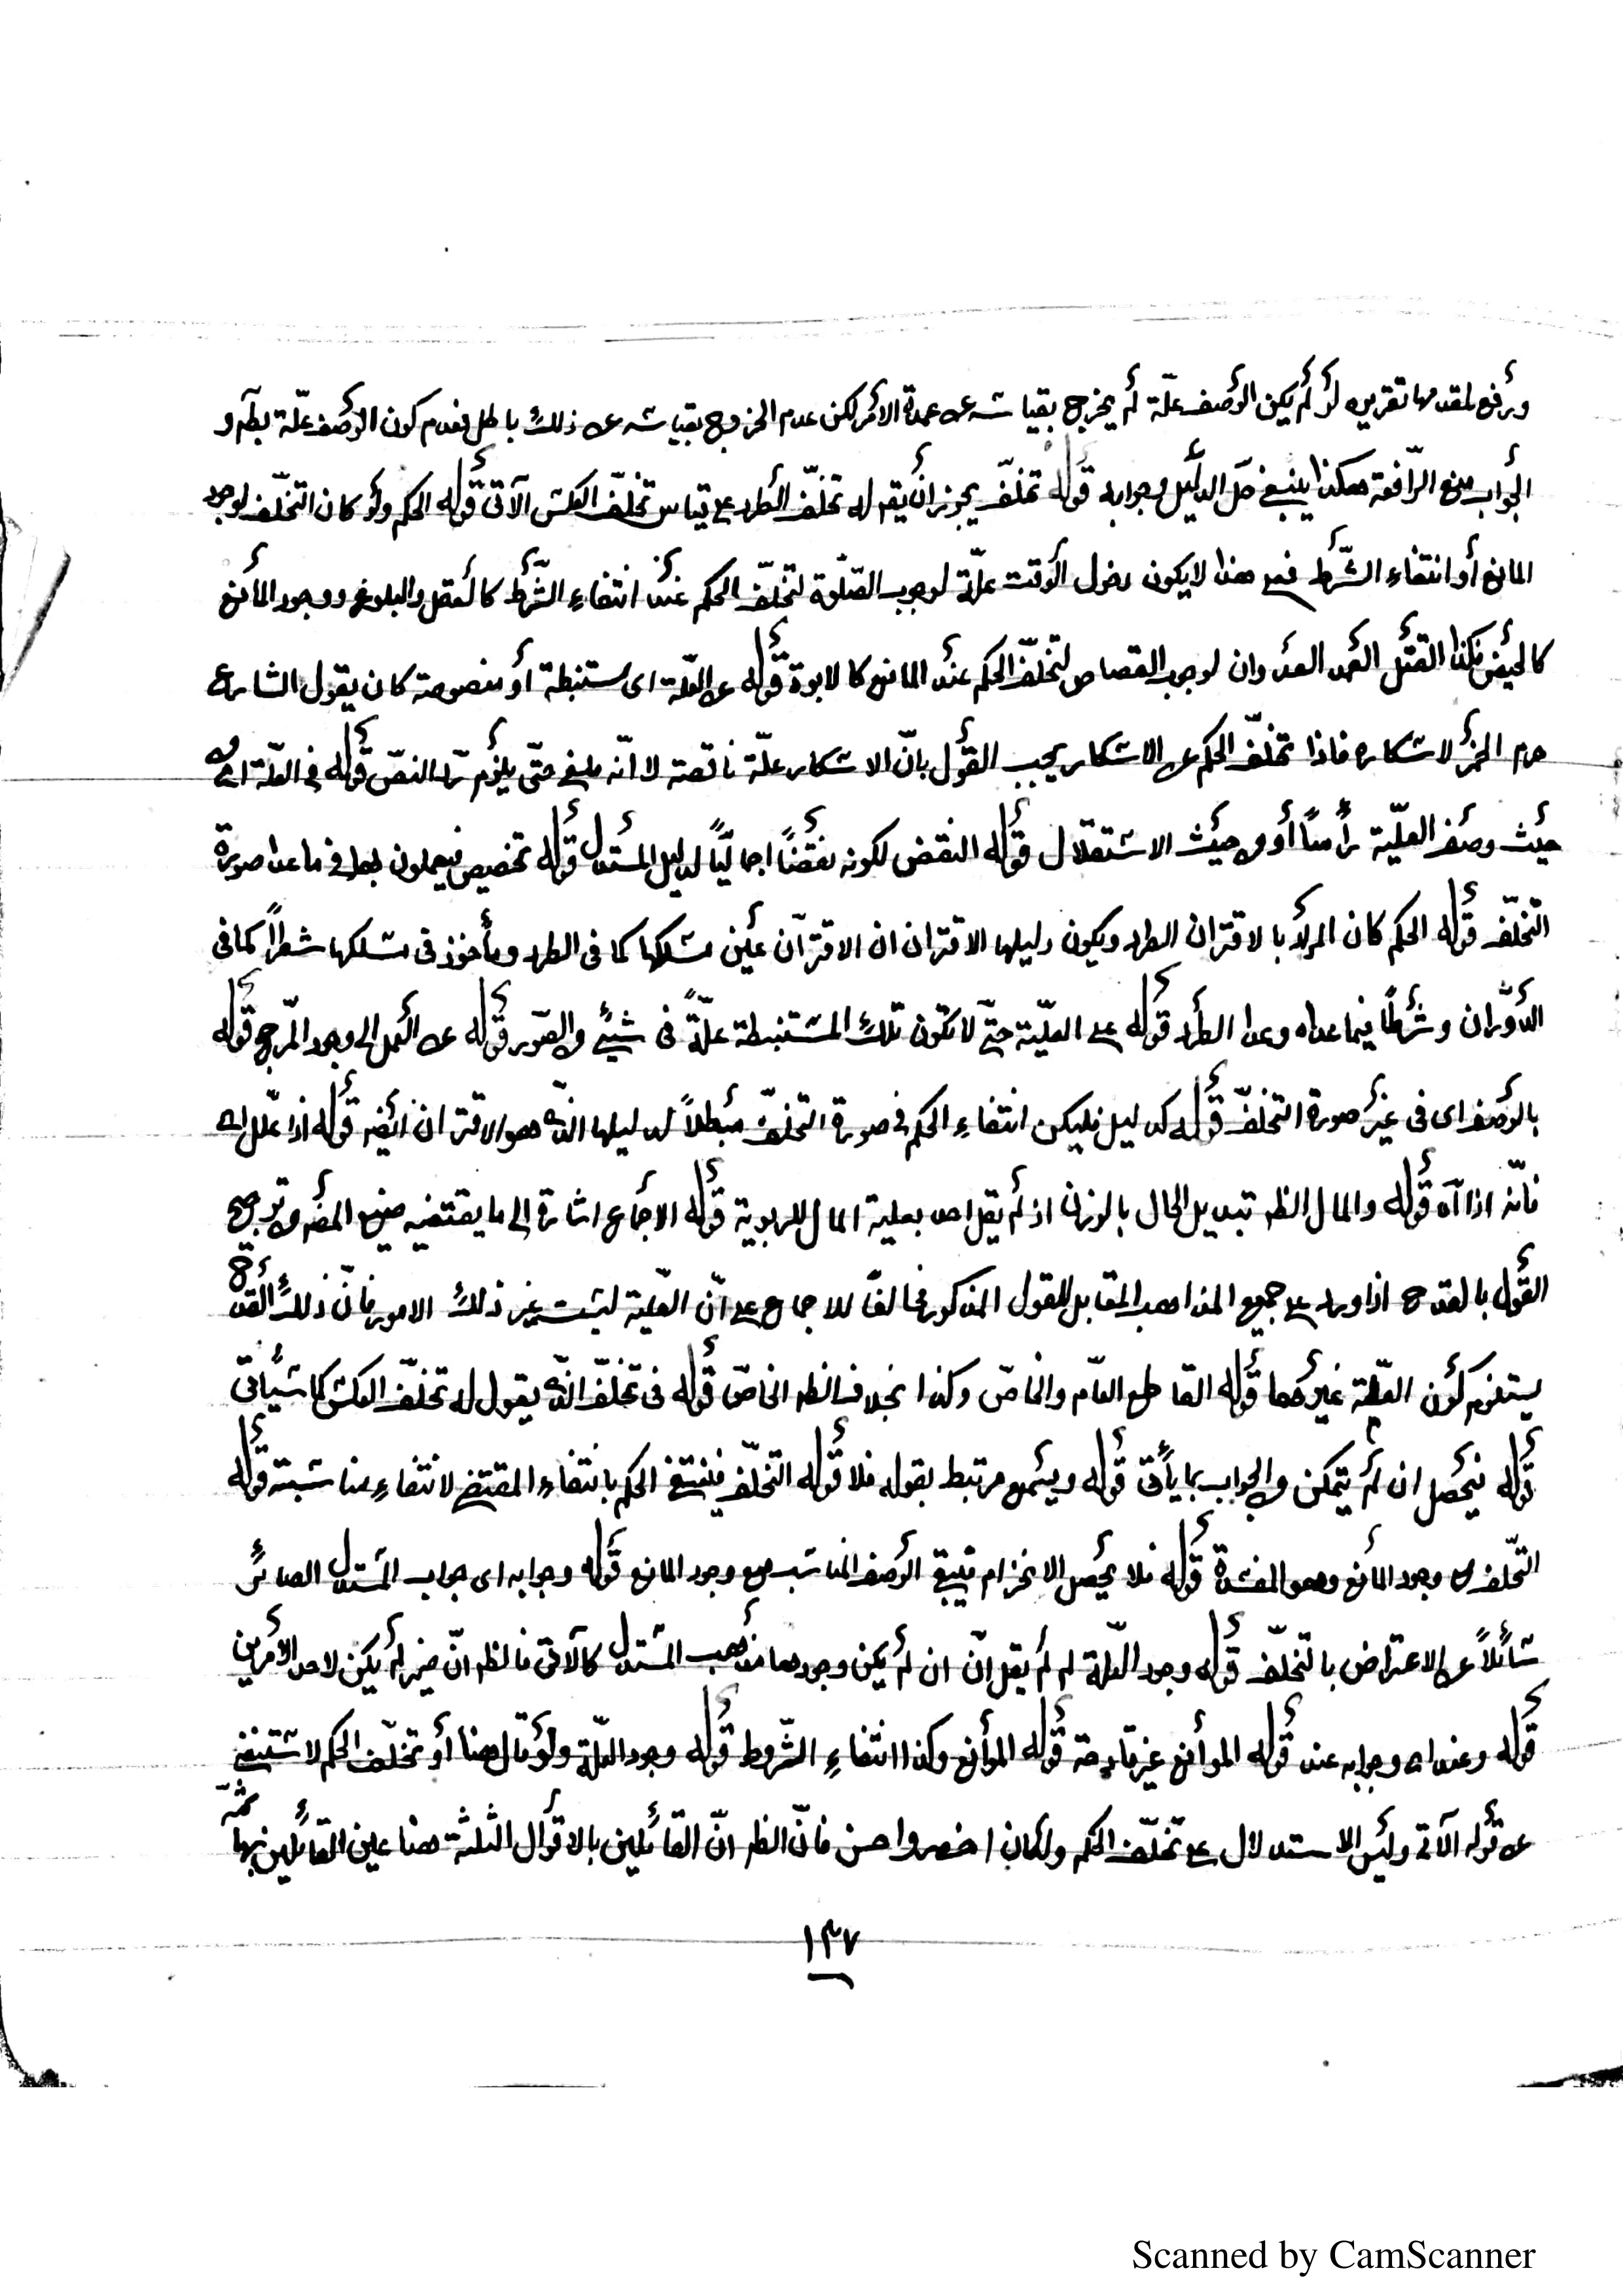 ورفع لمقدمها تقريره لو لم يكن الوصف علّة لم يخرج بقياسه عن عمدة الأمر لكن عدم الخروج بقياسه عن ذلك باطل فعدم كون الوصف علّة بط و
الجواب منع الرّافعة هكذا ينبغي حل الدليل وجوابه قوله تخلّف يجوز ان يقر له تخلّف الطرد على قياس تخلّف العكس الآتي قوله الحكم ولو كان التخلّف لوجود
المانع أو انتفاء الشّرط فعلى هذا لا يكون دخول الوقت علّة لوجوب الصّلوة لتخلّف الحكم عند انتفاء الشّرط كالعقل والبلوغ ووجود المانع
كالحيض وكذا القتل العمد العدوان لوجوب القصاص لتخلّف الحكم عند المانع كالابوة قوله عن العلّة اى مستنبطة أو منصوصة كان يقول الشارع
حرم الخمر لاسكاره فاذا تخلّف الحكم عن الاسكار يجب القول بانّ الاسكار علّة ناقصة لا انّه ملغى حتّى يلزم ردّ النصّ قوله فى العلّة اى من
حيث وصف العلّية رأساً أو من حيث الاستقلال قوله النقض لكونه نقضاً اجماليّاً لدليل المستدل قوله تخصيص فيعملون بها فى ما عدا صورة
التخلّف قوله الحكم كان المراد بالاقتران الطرد ويكون دليلها الاقتران ان الاقتران عين مسلكها كما فى الطرد ومأخوذ فى مسلكها شطراً كما فى
الدّوران وشرطاً فيما عداه وعدا الطرد قوله على العلّية حتّى لا تكون تلك المستنبطة علّةً فى شيئ من الصّور قوله عن العمل الى وجود المرجح قوله
بالوصف اى فى غير صورة التخلّف قوله كدليل فليكن انتفاء الحكم فى صورة التخلّف مبطلاً لدليلها الذى هو الاقتران ايضر قوله اذا علّل اه
فانّه اذا آه قوله والمال الظر تبديل المال بالوزن اذ لم يقل احد بعلية المال للربوية قوله الاجماع اشارة الى ما يقتضيه صنيع المصر من توجيح
القول بالقدح اذا ورد على جميع المذاهب المقابل للقول المذكور مخالفا للاجماع على انّ العلّية ليست غير ذلك الامور فانّ ذلك القدح
يستلزم كون العلّة غيرهما قوله القاطع العام والخاصّ وكذا بخلاف الظر الخاصّ قوله فى تخلّف الذى يقول له تخلّف العكس كما سيأتى
قوله فيحصل ان لم يتمكن من الجواب بما يأتى قوله ويسمع مرتبط بقوله فلا قوله التخلّف فينتفى الحكم بانتفاء المقتضى لانتفاء مناسبته قوله
التخّلف من وجود المانع وهو المفسدة قوله فلا يحصل الانخرام فيبقى الوصف المناسب مع وجود المانع قوله وجوابه اى جواب المستدل الصائر
سائلاً عن الاعتراض بالتخلّف قوله وجود العلّة لم لم يقل انّ ان لم يكن وجودهما مذهب المستدل كالآتى فالظر انّ ضير لم يكن لاحد الأمرين
قوله وعنداه وجوابه عند قوله الموانع غير قادحة قوله الموانع وكذا انتفاء الشّروط قوله وجود العلّة ولو قال هنا أو تخلّف الحكم لاستغنى
عن قوله الآتى وليس الاستدلال على تخلّف الحكم ولكان اخصر واحسن فانّ الظر انّ القائلين بالاقوال الثلثة هنا عين القائلين بها ثمّه
١٣٧
Scanned by CamScanner